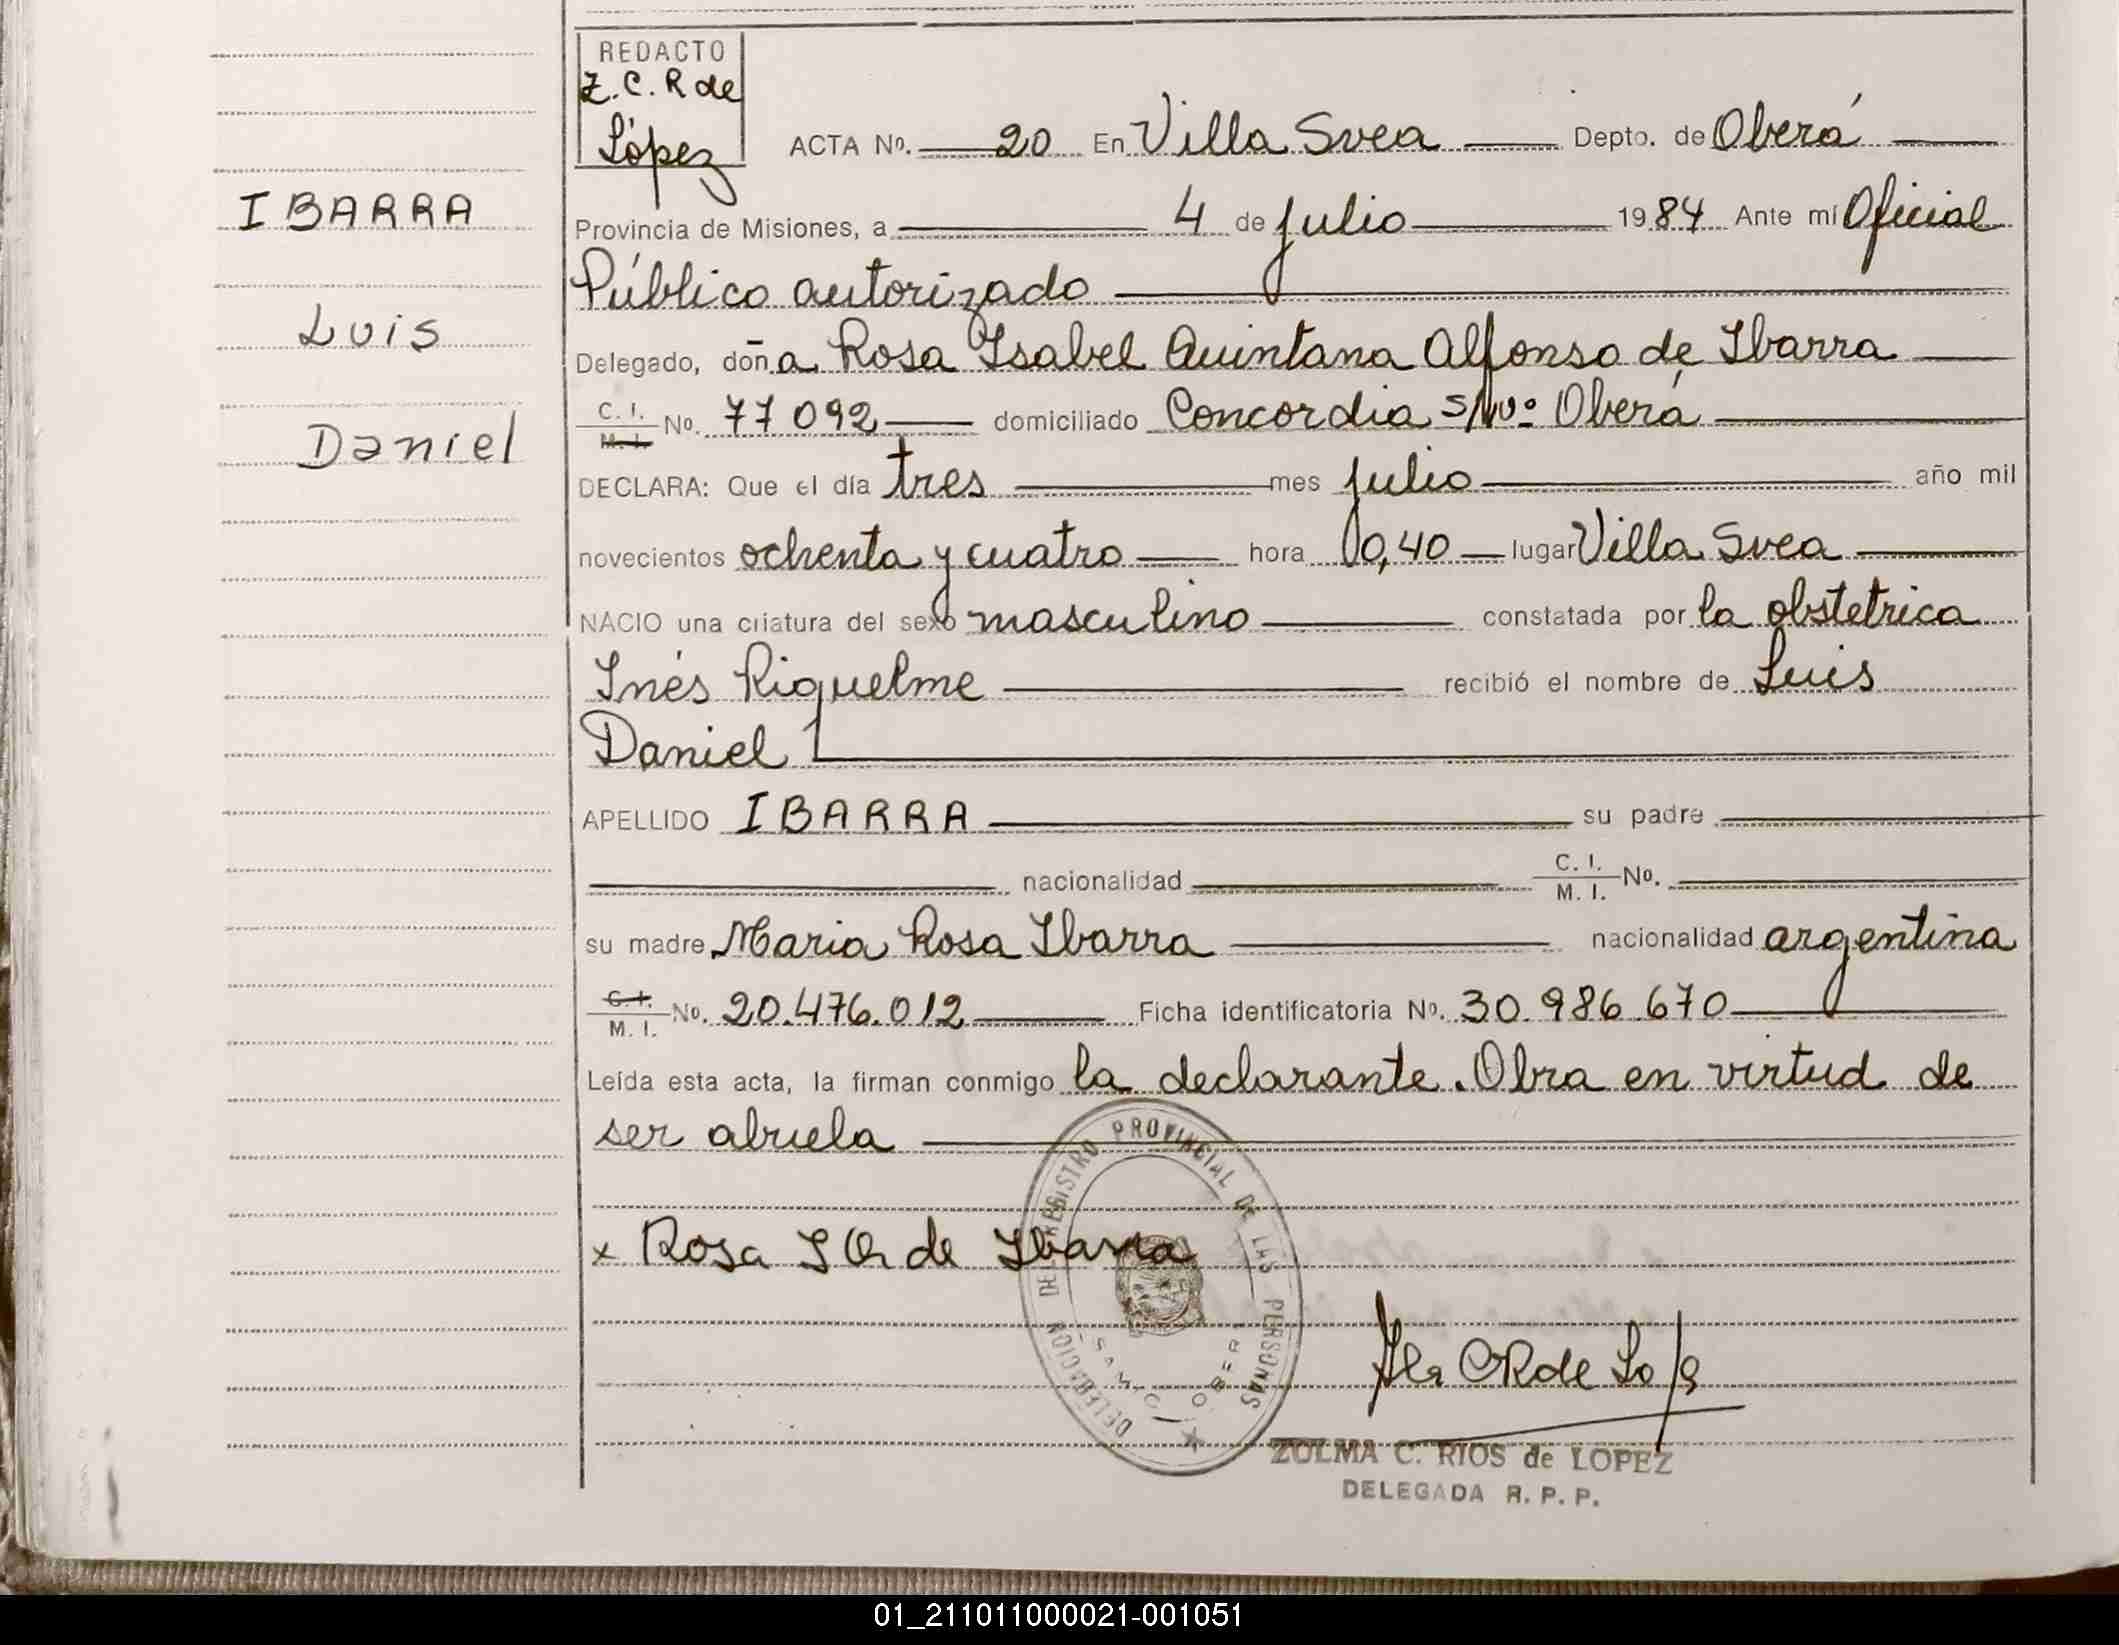 REDACTO
Z. C. R de
López
ACTA Nº. 20 En Villa Svea Depto. de Oberá
IBARRA
Provincia de Misiones, a 4 de julio 1984 Ante mí Oficial
Público autorizado
Luis
Delegado, doña Rosa Isabel Quintana Alfonso de Ibarra
Daniel
C. I. M. I. No. 77092 domiciliado Concordia s/Nº Oberá
DECLARA: Que el día tres mes julio año mil
novecientos ochenta y cuatro hora 00,40 lugar Villa Svea
NACIO una criatura del sexo masculino constatada por la obstetrica
Inés Riquelme recibió el nombre de Luis
Daniel
APELLIDO IBARRA su padre
nacionalidad C. I. M. I. No.
su madre Maria Rosa Ibarra nacionalidad argentina
C. I. M. I. No. 20.476.012 Ficha identificatoria Nº. 30.986.670
Leída esta acta, la firman conmigo la declarante. Obra en virtud de
ser abuela
x Rosa I Q de Ibarra
DELEGACION DEL REGISTRO PROVINCIAL DE LAS PERSONAS
OBERA
ZULMA C. RIOS de LOPEZ
DELEGADA R. P. P.
01_211011000021-001051